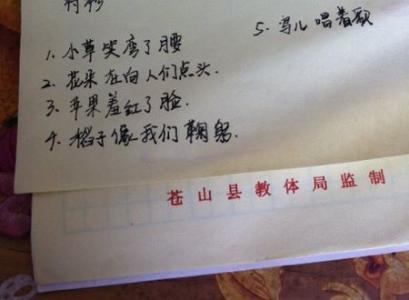 5. 鸟儿唱着歌
1. 小草笑弯了腰
2. 花朵在向人们点头.
3. 苹果羞红了脸.
4. 稻子像我们鞠躬.
苍山县教体局监制